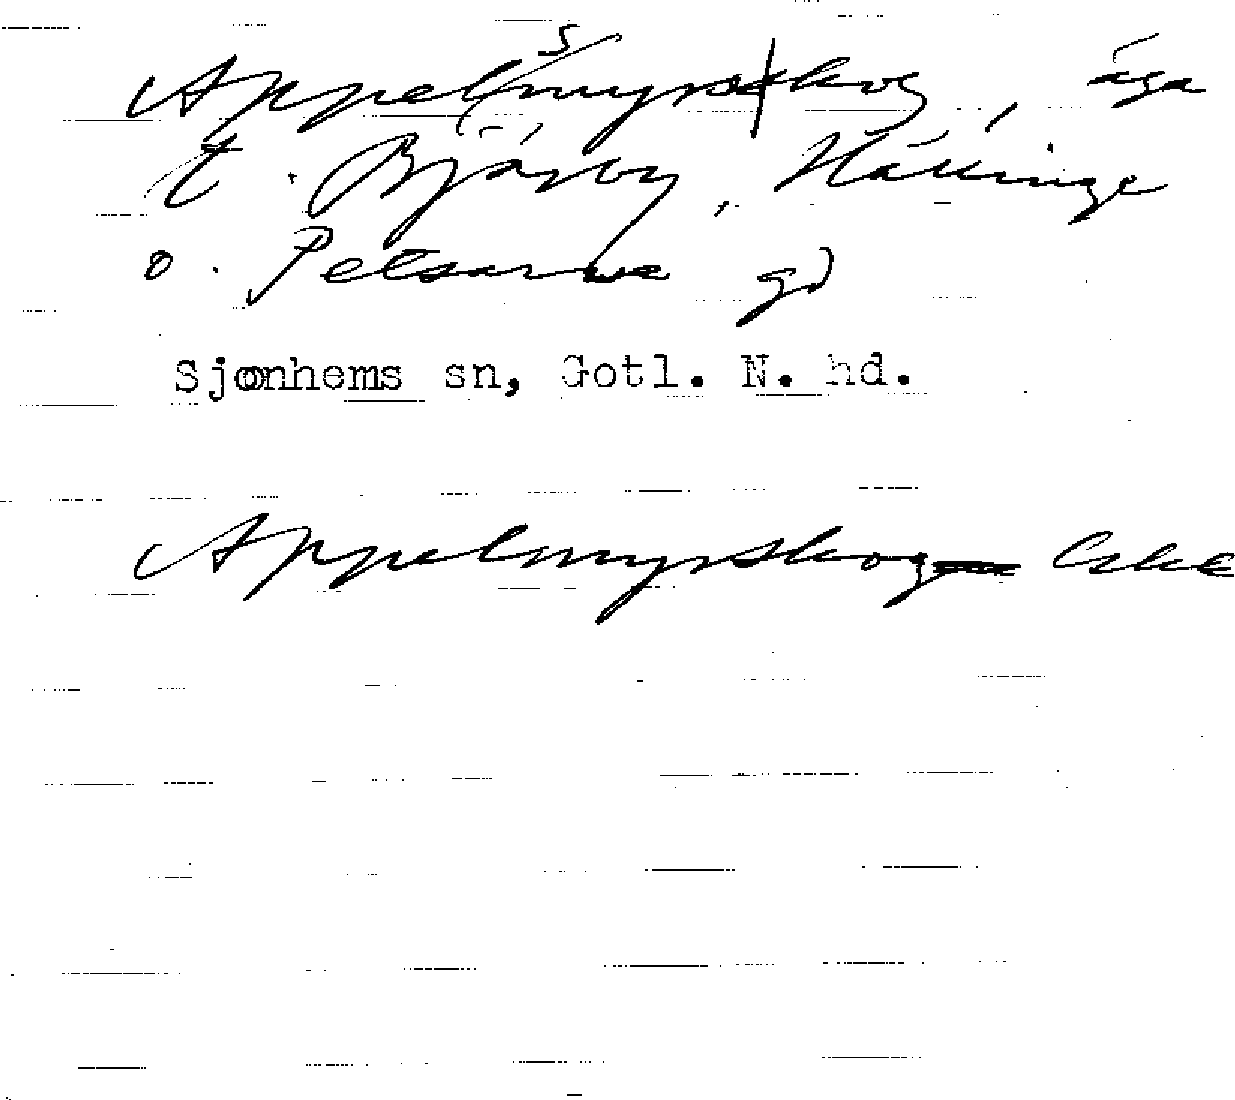 Appelsmyrskog, äga
t. Bjärby, Hällinge
o. Pelsarve gd
Sjonhems sn, Gotl. N. hd.
Appelmyrskog